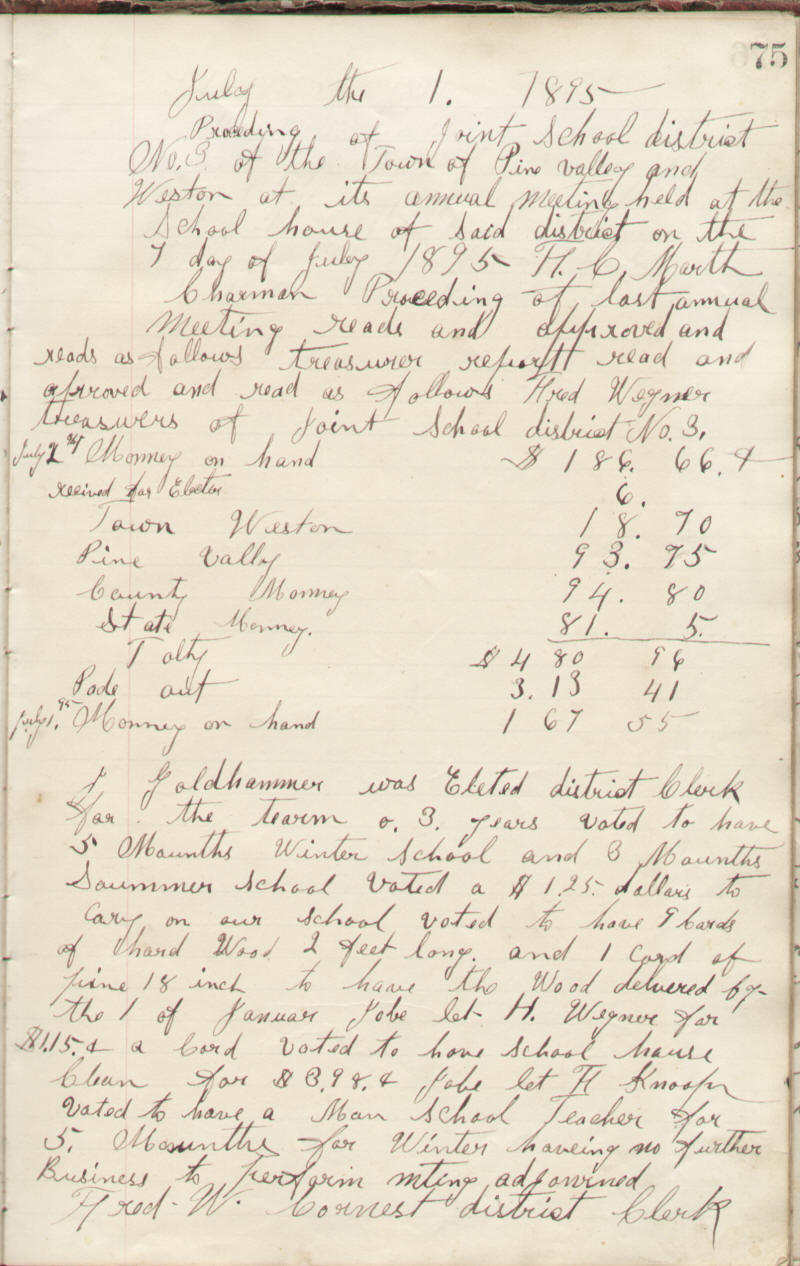 75
July the 1. 1895
Proceding of Joint School district
No. 3 of the Town of Pine valley and
Weston at its annual Meeting held at the
School house of said district on the
1 day of July 1895 H. C. Marth
Charman Proceeding of last annual
Meeting reads and approved and
reads as follows treasurer report read and
aprroved and read as follows Fred Wegner
treasurers of Joint School district No. 3.
July 2 Monney on hand $ 186. 66. ¢
received for 6.
Town Weston 18. 70
Pine Vally 93. 75
County Monney 94. 80
State Monney. 81. 5.
Tolty $ 4 80 96
Pade out 3. 13 41
July 1. 95 Monney on hand 1 67 55
J Goldhammer was Eleted district Clerk
for the tearm o. 3. years Voted to have
5 Maunths Winter School and 3 Maunths
Soummer School Voted a $ 1.25. dollars to
Cary on our School Voted to have 9 Cords
of hard Wood 2 feet long. and 1 Cord of
pine 18 inch to have the Wood delivered by
the 1 of Januar Jobe let H. Wegner for
$1.15. ¢ a Cord Voted to have School hause
Clean for $ 3.98. ¢ Jobe let H Knoop
Voted to have a Man School Teacher for
5. Maunths for Winter haveing no further
Business to perform mting adjowrned
Fred W. Cornest district Clerk